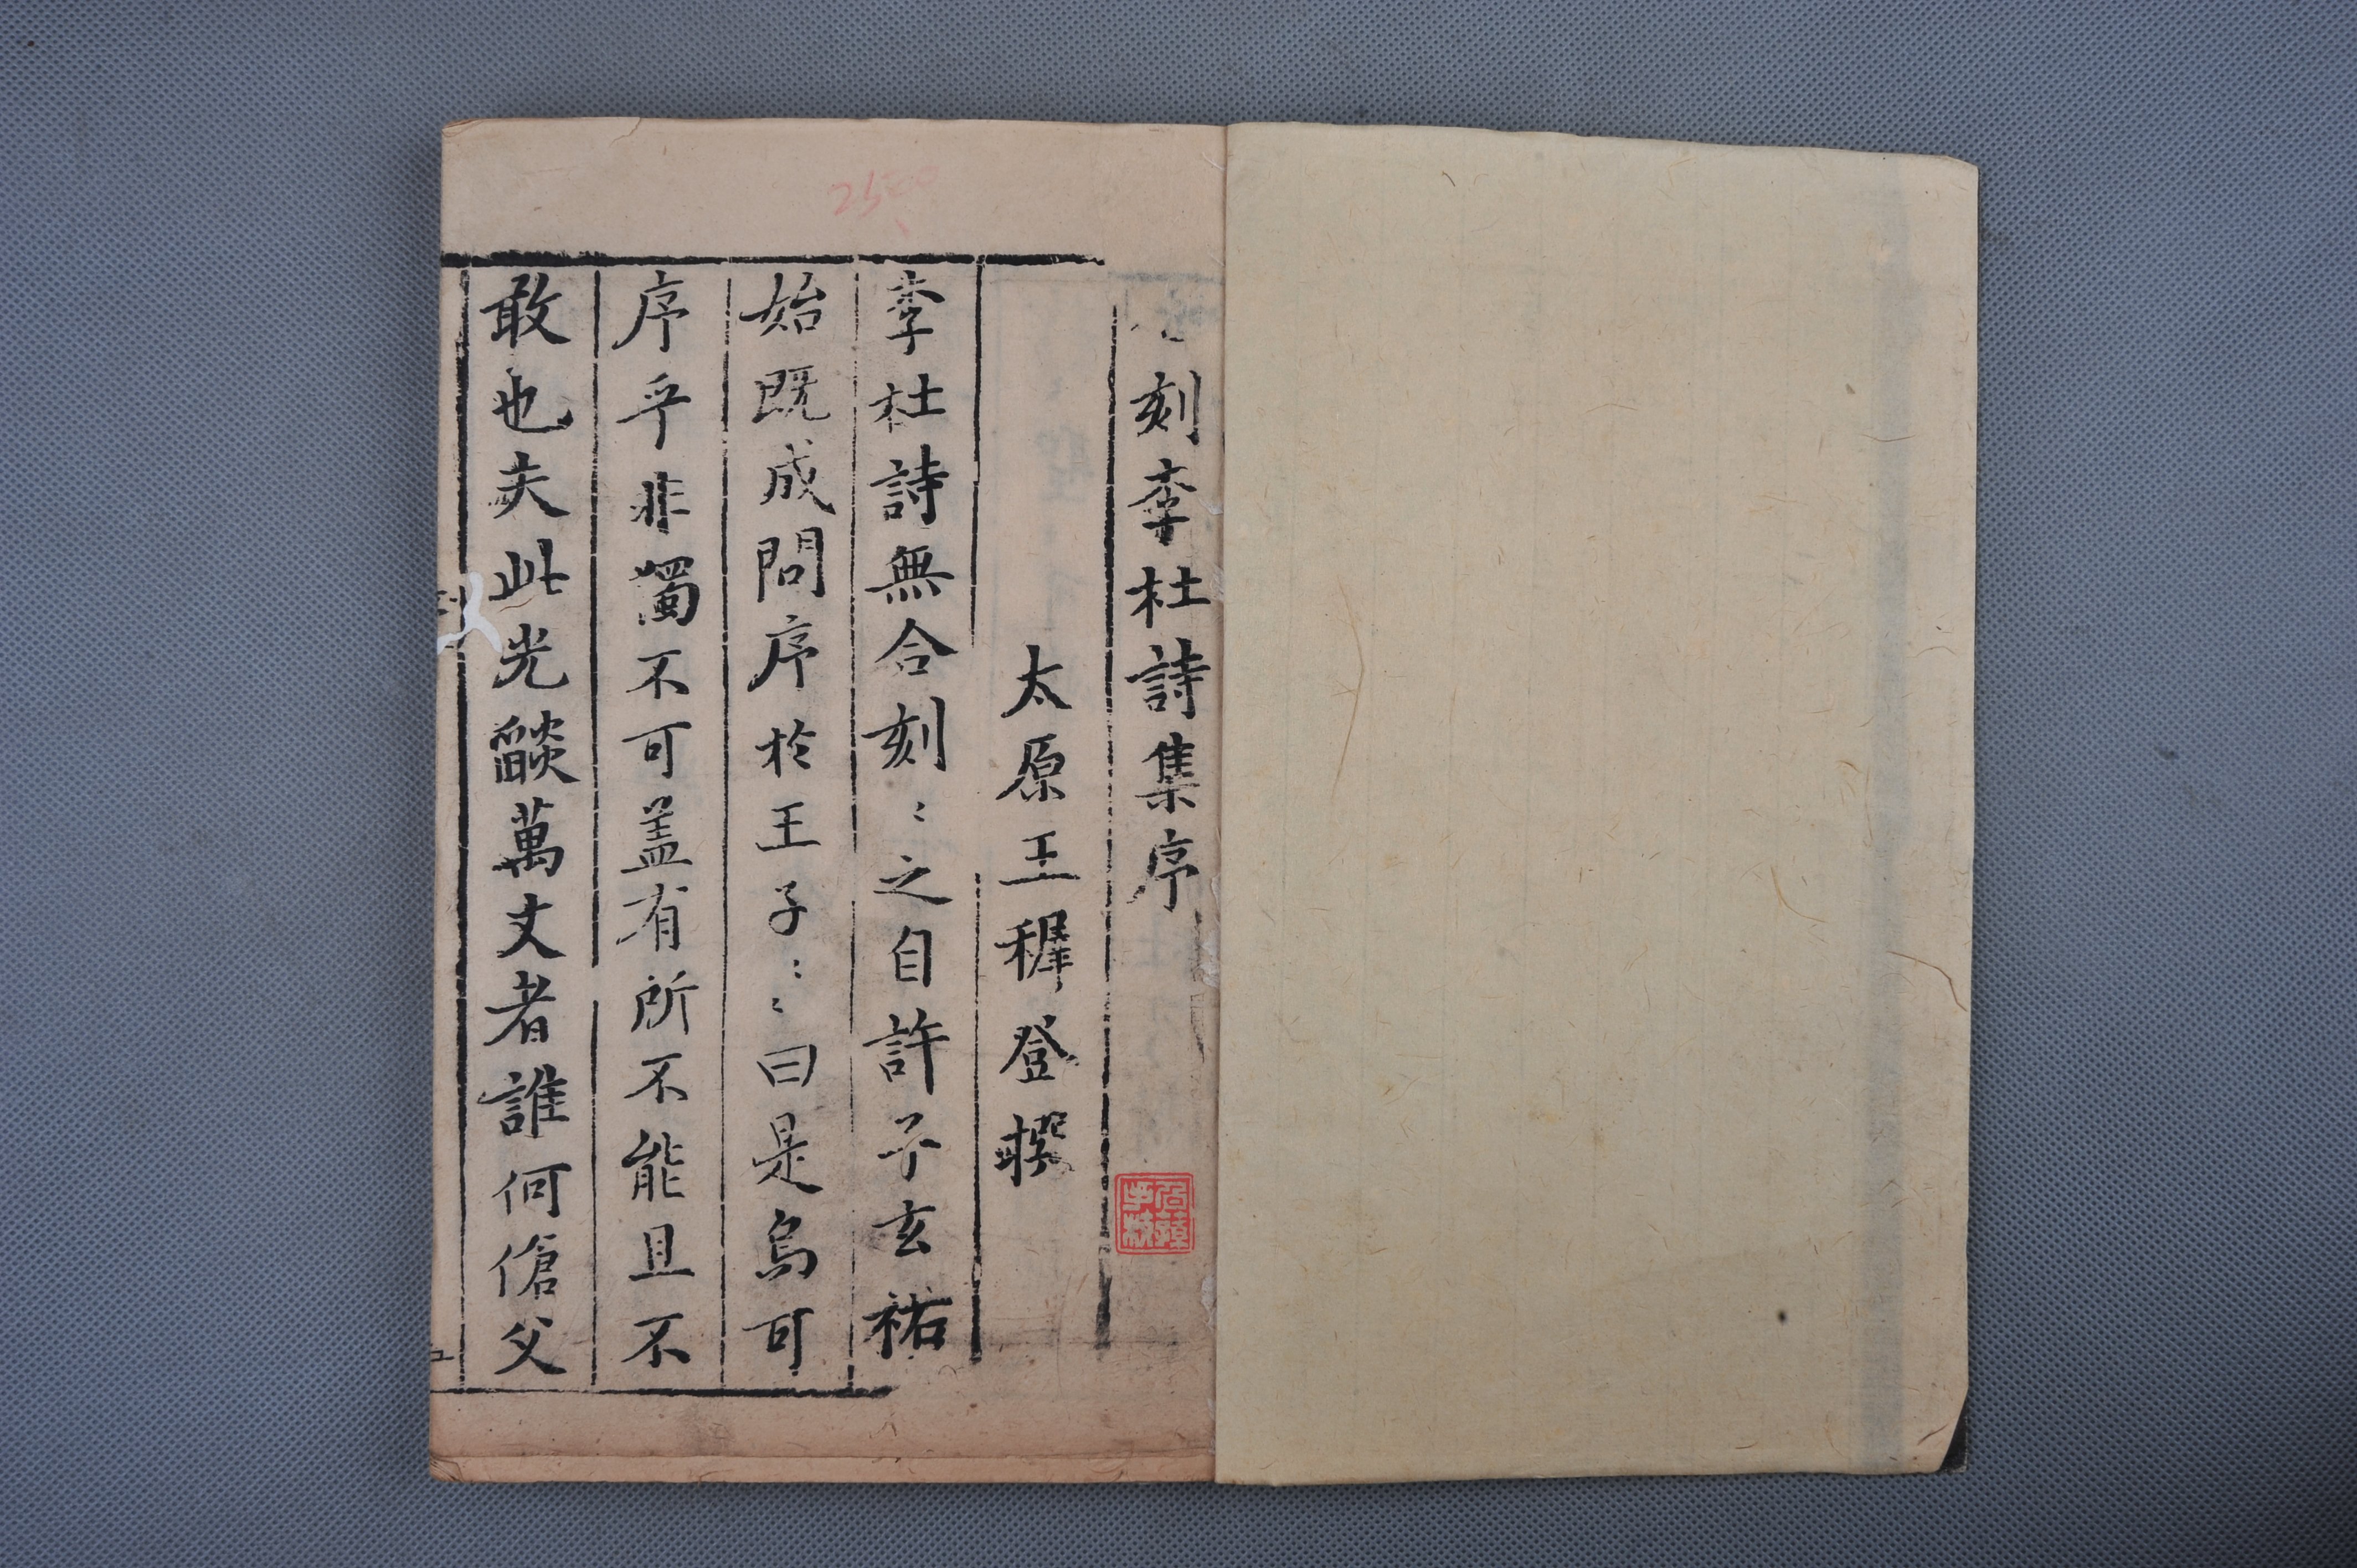 刻李杜詩集序
太原王穉登撰
李杜詩無合刻〻之自許子玄祐
始既成問序於王子〻〻曰是烏可
序乎非獨不可盖有所不能且不
敢也夫此光燄萬丈者誰何傖父